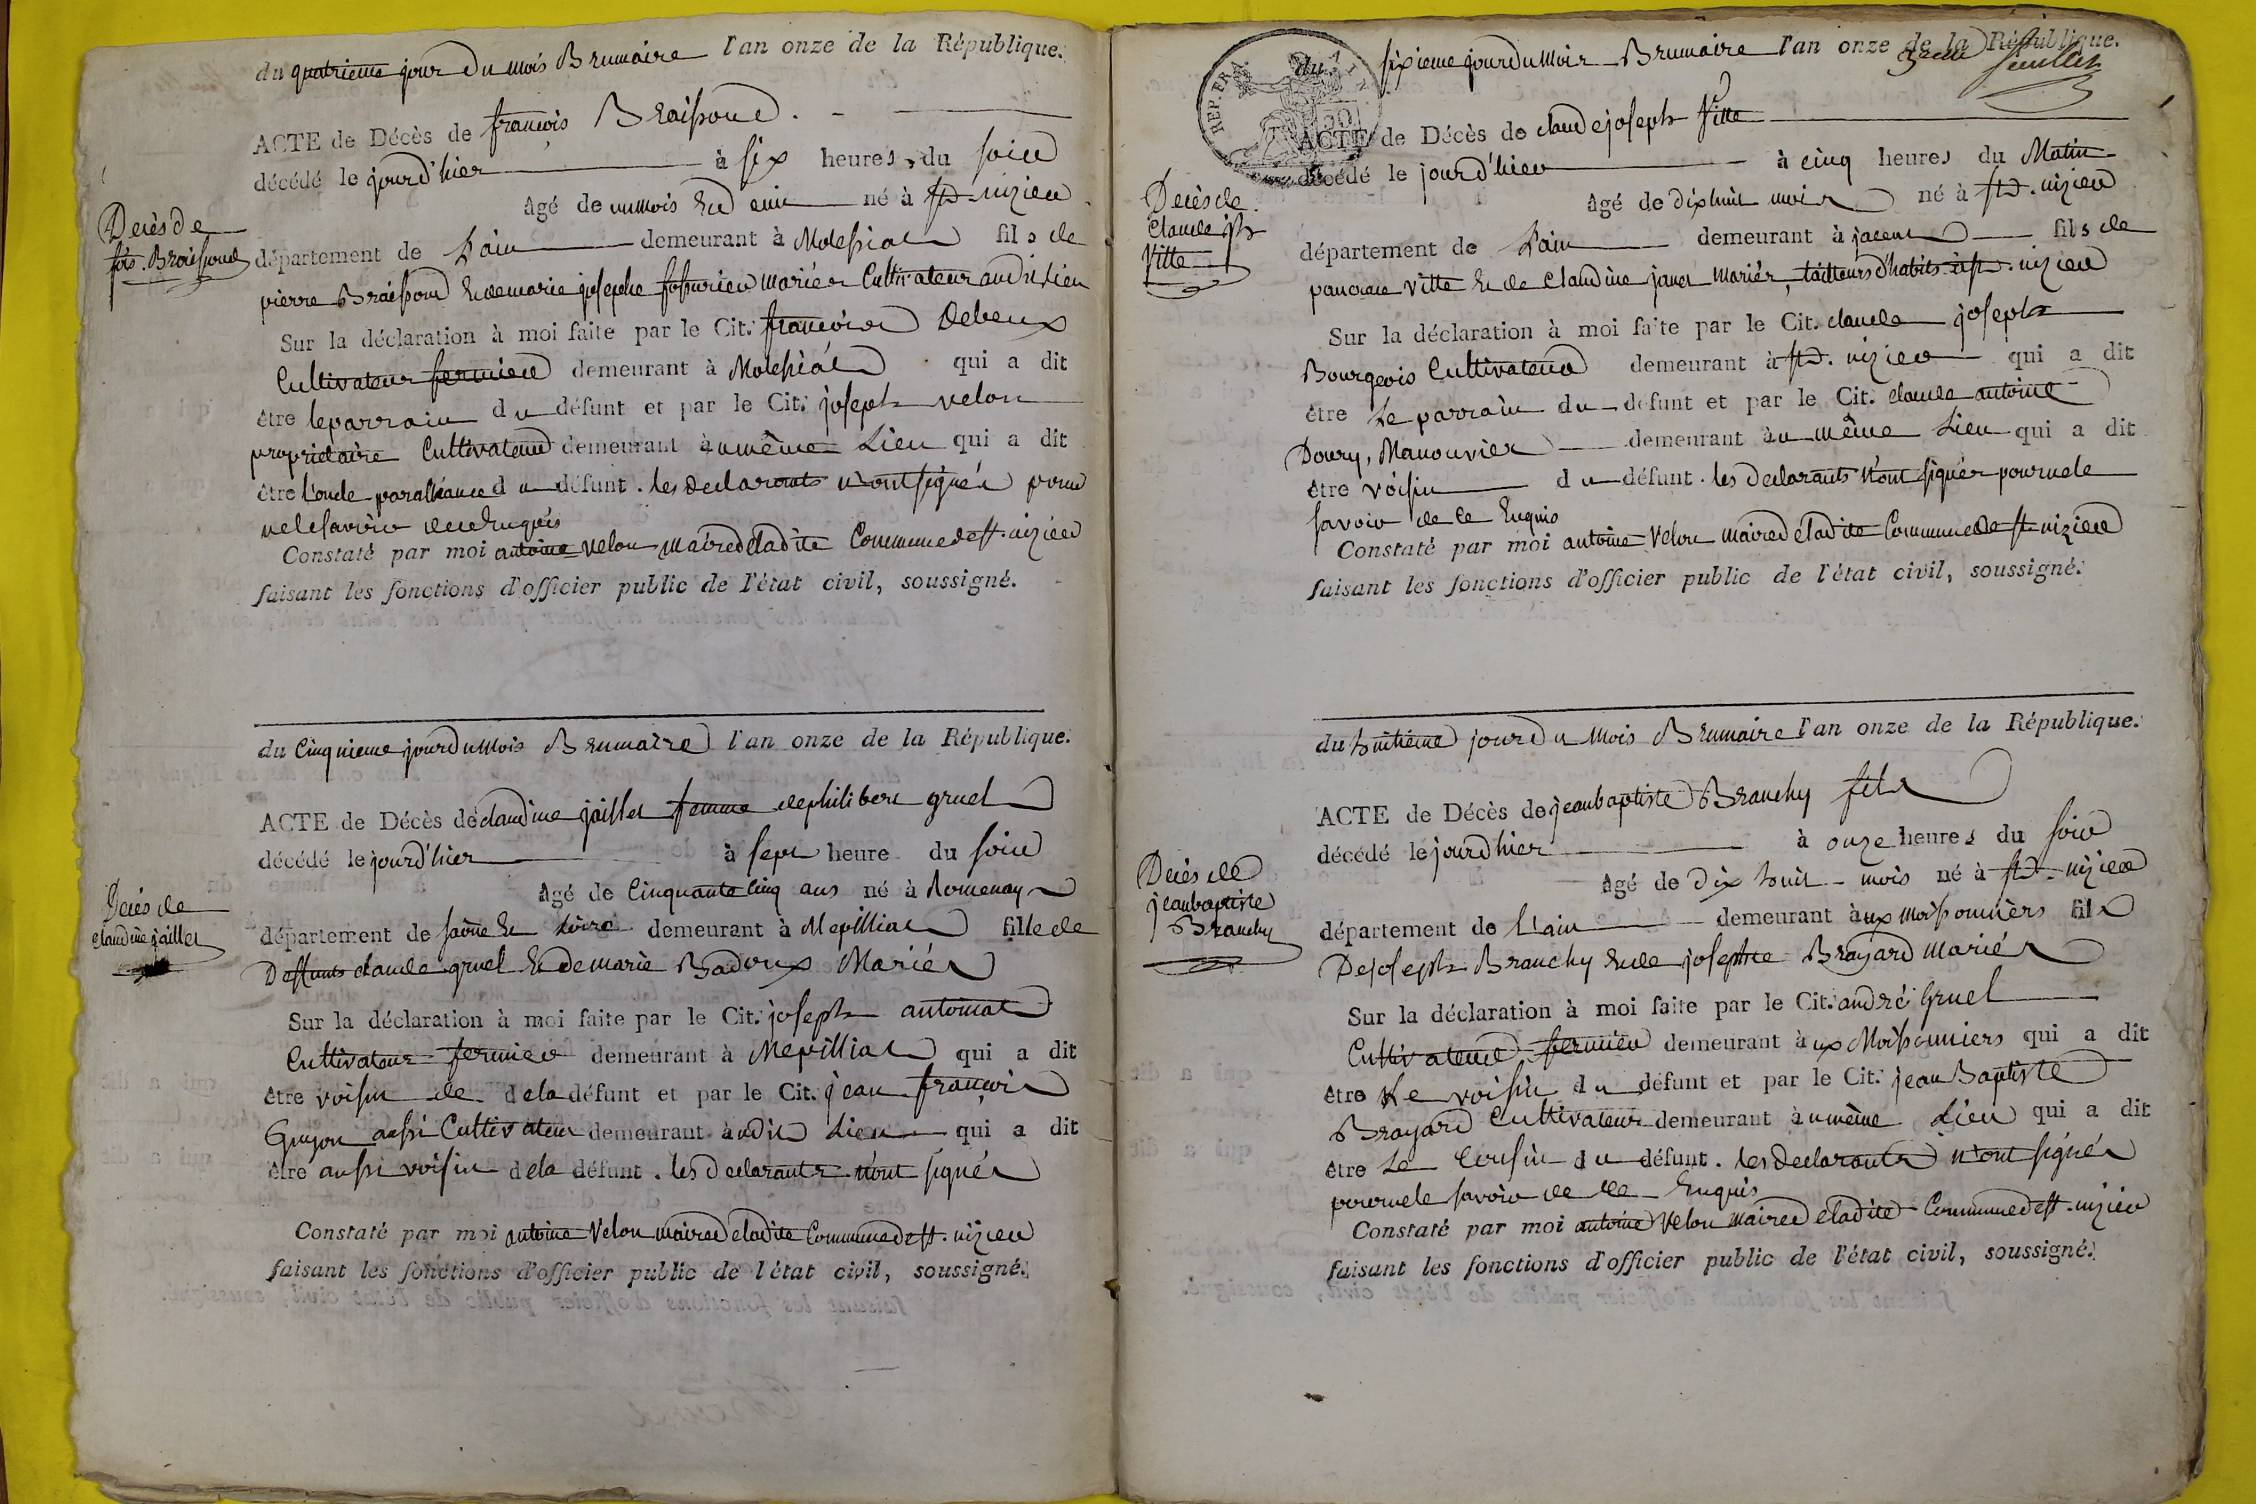 du quatrieme jour du mois Brumaire l'an onze de la République.
ACTE de Décès de françois Braissoud.
décédé le jourd'hier à six heures du soir
âgé de un mois et demi né à St. nizier
Décès de
fois. Braissoud
département de L'ain demeurant à Molissiat fils de
pierre Braissoud et de marie josephe mariés Cultivateur audit Lieu
Sur la déclaration à moi faite par le Cit. françois Debeux
Cultivateur fermier demeurant à Molissiat qui a dit
être le parrain du défunt et par le Cit. joseph velon
propriétaire Cultivateur demeurant au même Lieu qui a dit
être l'oncle par alliance du défunt. les declarants n'ont signés pour
ne le savoir de ce Enquis
Constaté par moi antoine velon maire de ladite Commune de St. nizier
faisant les fonctions d'officier public de l'état civil, soussigné.
du Cinquieme jour du Mois Brumaire l'an onze de la République.
ACTE de Décès de claudine jaillet femme de philibert gruel
décédé le jourd'hier à sept heure du soir
âgé de Cinquante Cinq ans né à Romenay
Décès de
claudine jaillet
département de saône et Loire demeurant à Mepilliat fille de
Deffunts claude gruel et de marie Badoux Mariés
Sur la déclaration à moi faite par le Cit. joseph automat
Cultivateur fermier demeurant à Mepilliat qui a dit
être voisin de de la défunt et par le Cit. jean françois
Guyon aussi Cultivateur demeurant audit Lieu qui a dit
être aussi voisin de la défunt. les declarants n'ont signés
Constaté par moi antoine velon maire de ladite Commune de St. nizier
faisant les fonctions d'officier public de l'état civil, soussigné.
3eme feuillet
REP. FRA.
du sixieme jour du Mois Brumaire l'an onze de la République.
ACTE de Décès de claude joseph Vitte
décédé le jourd'hier à cinq heures du Matin
âgé de dix huit mois né à St. nizier
Décès de
Claude jph
Vitte
département de L'ain demeurant à fils de
pancrace vitte et de Claudine janet mariés, tailleurs d'habits à St. nizier
Sur la déclaration à moi faite par le Cit. claude joseph
Bourgeois Cultivateur demeurant à St. nizier qui a dit
être Le parrain du défunt et par le Cit. claude antoine
Doury, Manouvrier demeurant au même Lieu qui a dit
être voisin du défunt. les declarants n'ont signés pour ne le
savoir de ce Enquis
Constaté par moi antoine Velon maire de ladite Commune de St. nizier
faisant les fonctions d'officier public de l'état civil, soussigné.
du huitième jour du Mois Brumaire l'an onze de la République.
ACTE de Décès de jean baptiste Branchy fils
décédé le jourd'hier à onze heures du soir
âgé de Dix huit mois né à St. nizier
Décès de
jean baptiste
Branchy
département de L'ain demeurant aux moissonniers fils
De joseph Branchy et de josephte Brayard mariés
Sur la déclaration à moi faite par le Cit. andré Gruel
Cultivateur fermier demeurant aux Moissonniers qui a dit
être Le voisin du défunt et par le Cit. jean Baptiste
Brayard Cultivateur demeurant au même Lieu qui a dit
être Le Cousin du défunt. les declarants n'ont signés
pour ne le savoir de ce Enquis
Constaté par moi antoine Velon maire de ladite Commune de St. nizier
faisant les fonctions d'officier public de l'état civil, soussigné.